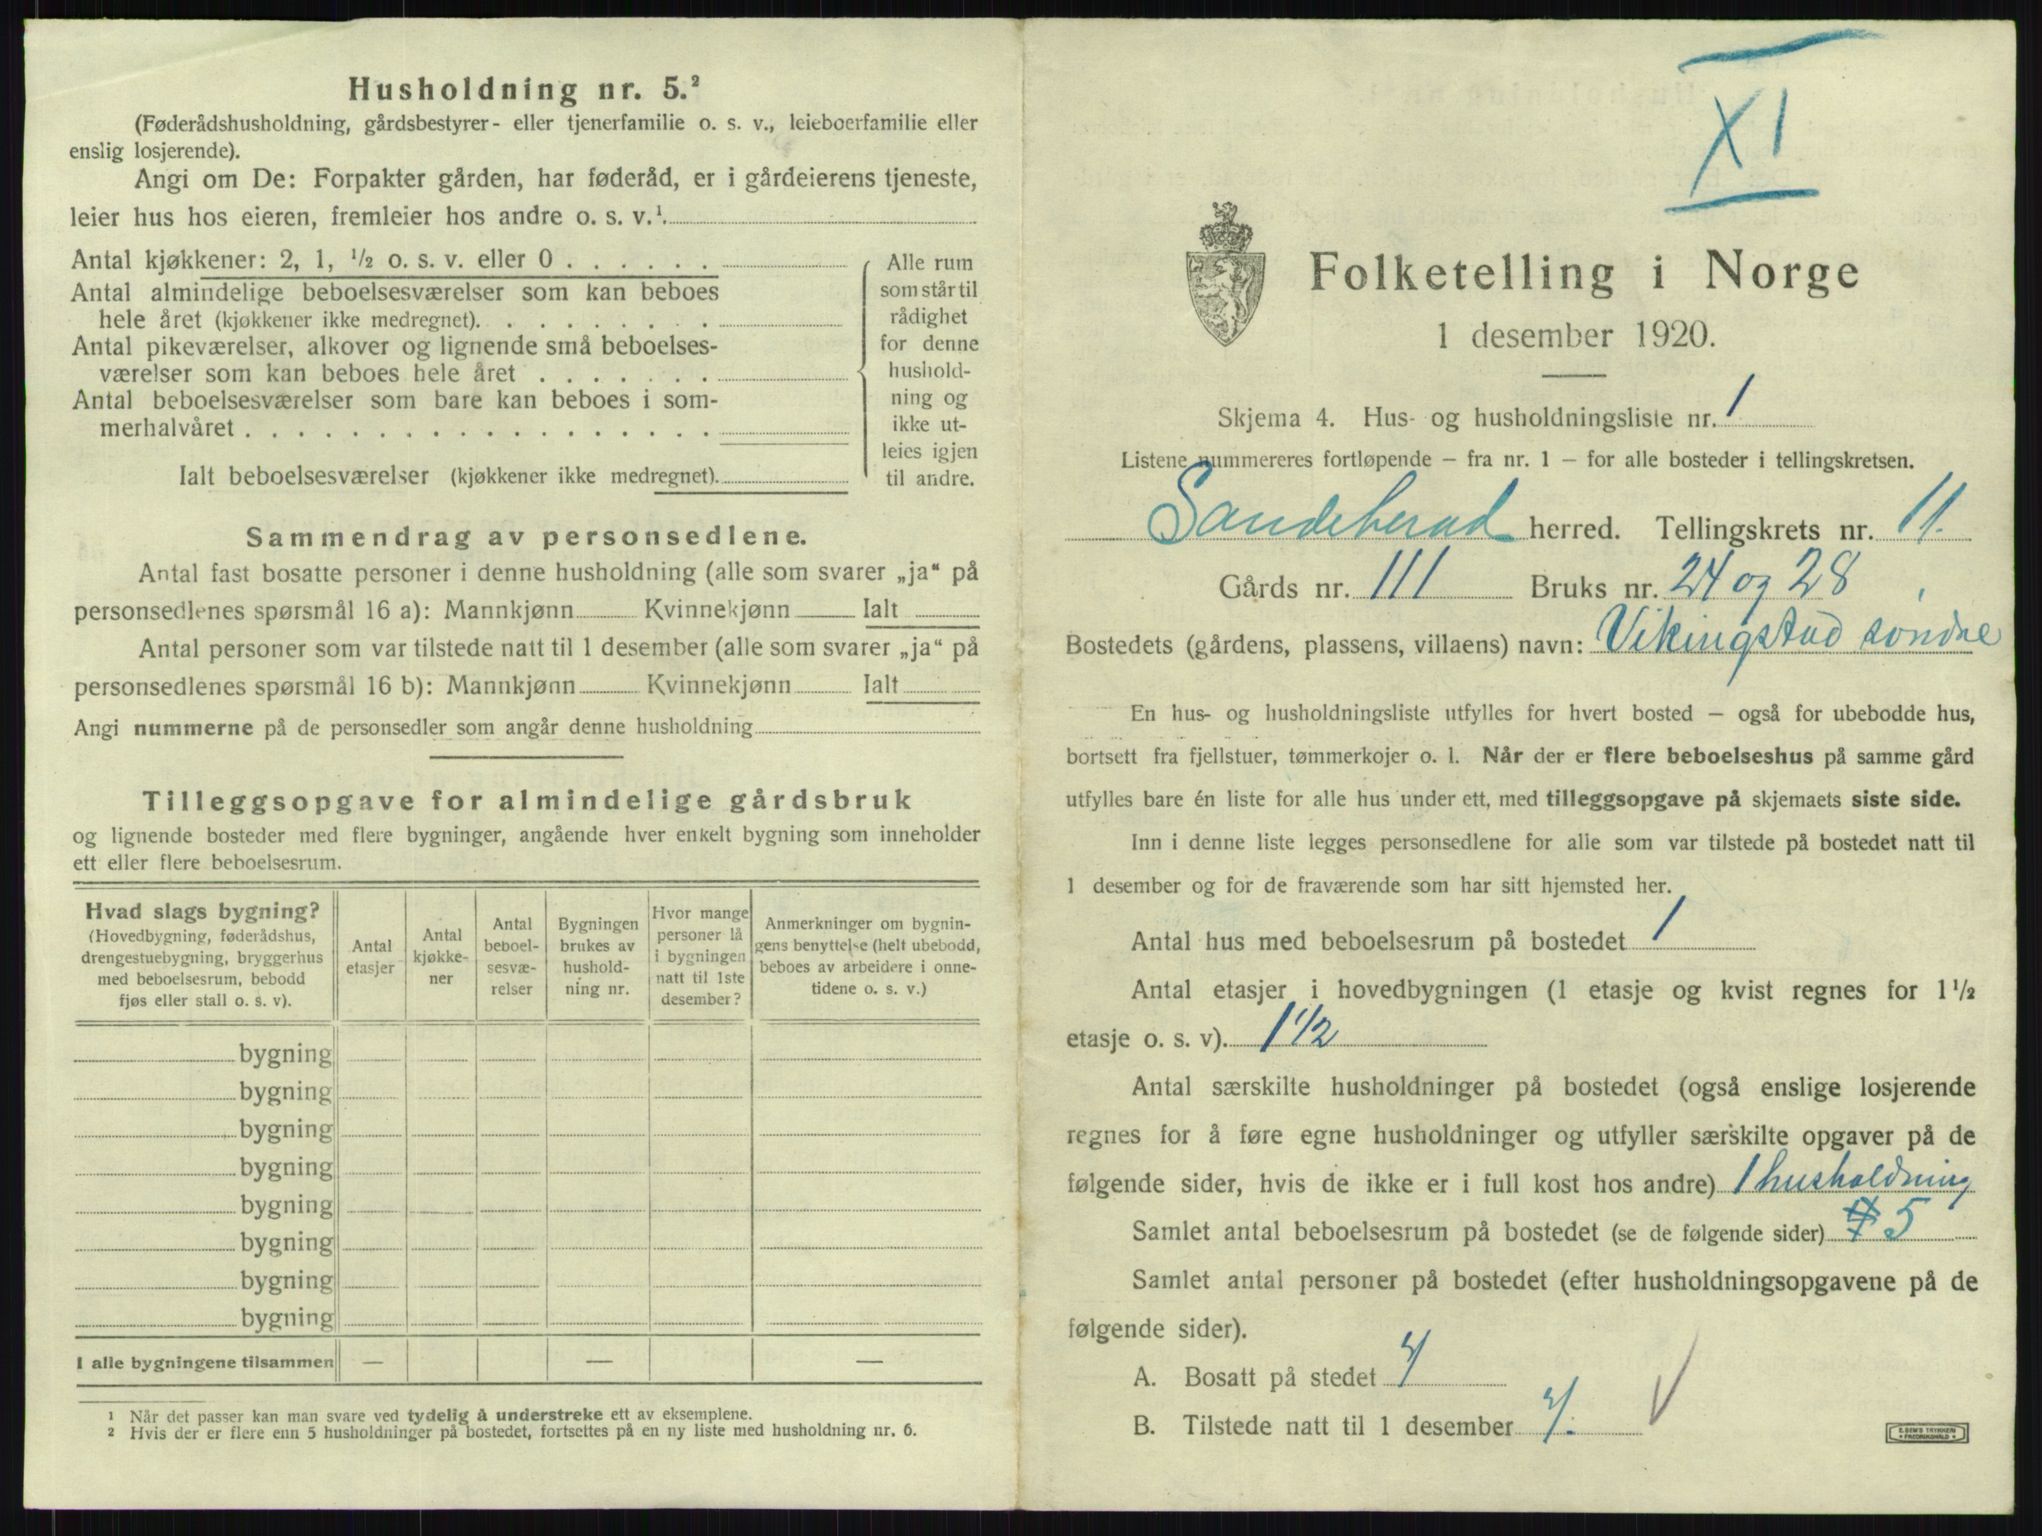 Husholdning nr. 5.²
(Føderådshusholdning, gårdsbestyrer- eller tjenerfamilie o. s. v., leieboerfamilie eller
enslig losjerende).
Angi om De: Forpakter gården, har føderåd, er i gårdeierens tjeneste,
leier hus hos eieren, fremleier hos andre o. s. v.¹
Antal kjøkkener: 2, 1, ½ o. s. v. eller 0
Antal almindelige beboelsesværelser som kan beboes
hele året (kjøkkener ikke medregnet).
Antal pikeværelser, alkover og lignende små beboelses-
værelser som kan beboes hele året
Antal beboelsesværelser som bare kan beboes i som-
merhalvåret
Ialt beboelsesværelser (kjøkkener ikke medregnet).
Alle rum
som står til
rådighet
for denne
hushold-
ning og
ikke ut-
leies igjen
til andre.
Sammendrag av personsedlene.
Antal fast bosatte personer i denne husholdning (alle som svarer „ja“ på
personsedlenes spørsmål 16 a): Mannkjønn Kvinnekjønn Ialt
Antal personer som var tilstede natt til 1 desember (alle som svarer „ja“ på
personsedlenes spørsmål 16 b): Mannkjønn Kvinnekjønn Ialt
Angi nummerne på de personsedler som angår denne husholdning
Tilleggsopgave for almindelige gårdsbruk
og lignende bosteder med flere bygninger, angående hver enkelt bygning som inneholder
ett eller flere beboelsesrum.
Hvad slags bygning?
(Hovedbygning, føderådshus,
drengestuebygning, bryggerhus
med beboelsesrum, bebodd
fjøs eller stall o. s. v).
Antal
etasjer
Antal
kjøkke-
ner
Antal
beboel-
sesvæ-
relser
Bygningen
brukes av
hushold-
ning nr.
Hvor mange
personer lå
i bygningen
natt til 1ste
desember?
Anmerkninger om bygnin-
gens benyttelse (helt ubebodd,
beboes av arbeidere i onne-
tidene o. s. v.)
bygning
bygning
bygning
bygning
bygning
bygning
bygning
bygning
I alle bygningene tilsammen — — —
1 Når det passer kan man svare ved tydelig å understreke ett av eksemplene.
2 Hvis der er flere enn 5 husholdninger på bostedet, fortsettes på en ny liste med husholdning nr. 6.
XI
Folketelling i Norge
1 desember 1920.
Skjema 4. Hus- og husholdningsliste nr. 1
Listene nummereres fortløpende – fra nr. 1 – for alle bosteder i tellingskretsen.
Sandeherad herred. Tellingskrets nr. 11.
Gårds nr. 111 Bruks nr. 24 og 28
Bostedets (gårdens, plassens, villaens) navn: Vikingstad søndre
En hus- og husholdningsliste utfylles for hvert bosted – også for ubebodde hus,
bortsett fra fjellstuer, tømmerkojer o. l. Når der er flere beboelseshus på samme gård
utfylles bare én liste for alle hus under ett, med tilleggsopgave på skjemaets siste side.
Inn i denne liste legges personsedlene for alle som var tilstede på bostedet natt til
1 desember og for de fraværende som har sitt hjemsted her.
Antal hus med beboelsesrum på bostedet 1
Antal etasjer i hovedbygningen (1 etasje og kvist regnes for 1½
etasje o. s. v). 1 1/2
Antal særskilte husholdninger på bostedet (også enslige losjerende
regnes for å føre egne husholdninger og utfyller særskilte opgaver på de
følgende sider, hvis de ikke er i full kost hos andre) 1 husholdning
Samlet antal beboelsesrum på bostedet (se de følgende sider) 5
Samlet antal personer på bostedet (efter husholdningsopgavene på de
følgende sider).
A. Bosatt på stedet 4
B. Tilstede natt til 1 desember 4.
E. SEM'S TRYKKERI
• FREDRIKSHALD •